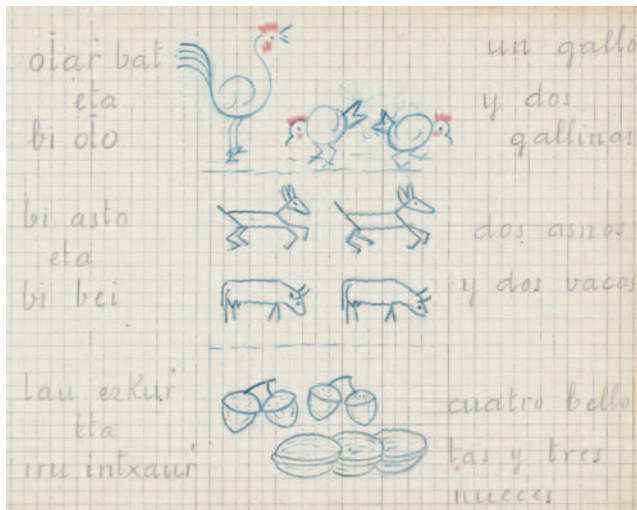 oĺaŕ bat
eta
bi oĺo
bi asto
eta
bi bei
lau ezkuŕ
eta
iru intxauŕ
un gallo
y dos
gallinas
dos asnos
y dos vacas
cuatro bello
tas y tres
nueces